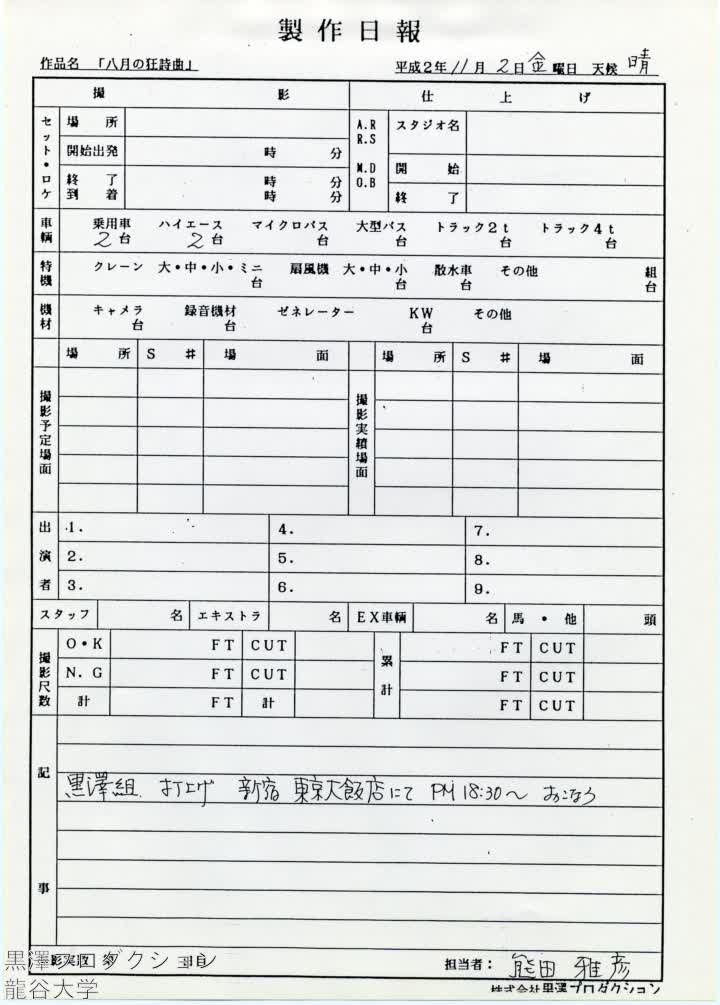 製作日報
作品名 「八月の狂詩曲」 平成2年11月2日金曜日 天候 晴
撮影 仕上げ
セット・ロケ 場所 A.R R.S スタジオ名
開始出発 時 分 M.D O.B 開始
終了 時 分
到着 時 分 終了
車輌 乗用車 ハイエース マイクロバス 大型バス トラック2t トラック4t
2台 2台 台 台 台 台
特機 クレーン 大・中・小・ミニ 扇風機 大・中・小 散水車 その他 組
台 台 台 台
機材 キャメラ 録音機材 ゼネレーター KW その他
台 台 台
場所 S# 場面 場所 S# 場面
撮影予定場面 撮影実績場面
出演者 1. 4. 7.
2. 5. 8.
3. 6. 9.
スタッフ 名 エキストラ 名 EX車輌 名 馬・他 頭
撮影尺数 O・K FT CUT 累計 FT CUT
N.G FT CUT FT CUT
計 FT 計 FT CUT
記事
黒澤組 打上げ 新宿 東京大飯店にて PM 18:30〜 おこなう
担当者: 熊田 雅彦
株式会社黒澤プロダクション
黒澤プロダクション
龍谷大学